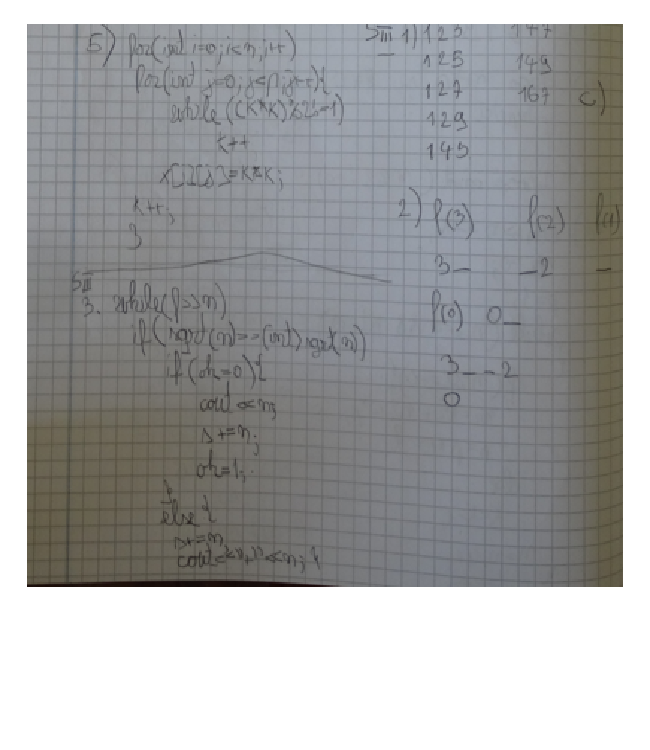 5) for(int i=0; i<n; i++)
for(int j=0; j<p; j++){
while ((k*k)%2==1)
k++
x[i][j]=k*k;
k++;
}
SIII
3. while(f>>n)
if(sqrt(n)==(int)sqrt(n))
if(ok=0){
cout<<n;
s+=n;
ok=1;
}
else{
s+=n;
SIII 1) 123 147
125 149
127 167 c)
129
145
2) f(3) f(2) f(1)
3_ _2 _
f(0) 0_
3_ _2
0